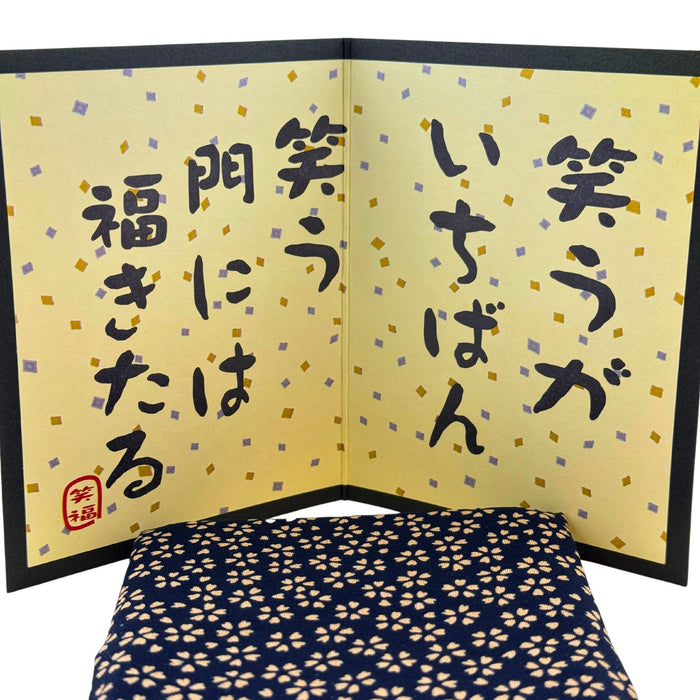 笑うが
いちばん
笑う
門には
福きたる
笑
福